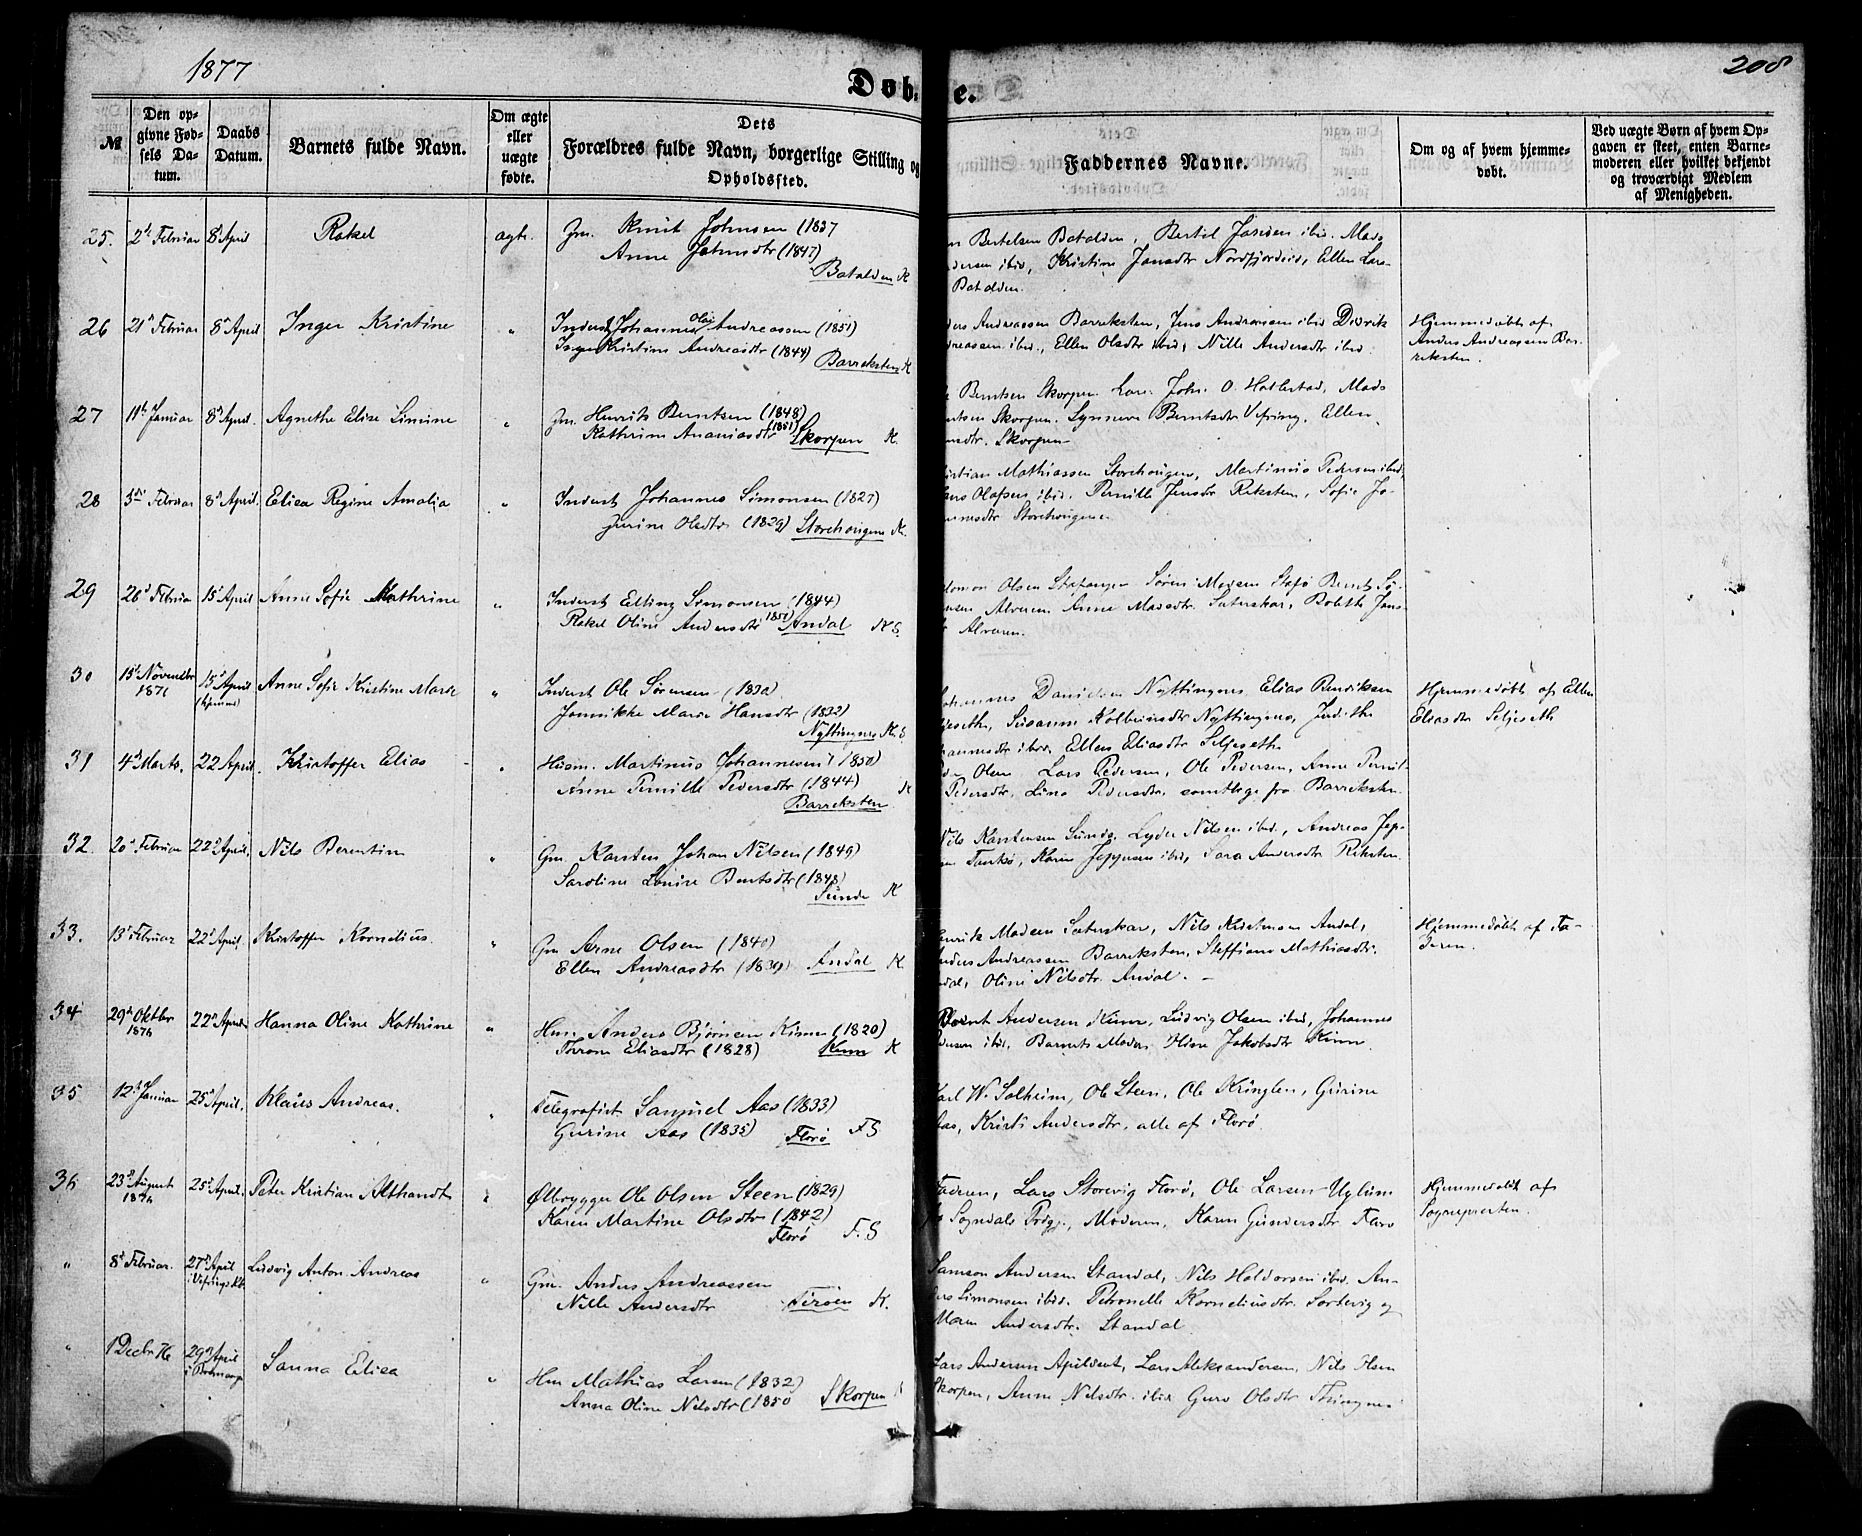 1877
Døb. e.
208
№
Den opgivne Fødsels Datum.
Daabs Datum.
Barnets fulde Navn.
Om ægte eller uægte fødte.
Dets Forældres fulde Navn, borgerlige Stilling og Opholdssted.
Faddernes Navne.
Om og af hvem hjemmedøbt.
Ved uægte Børn af hvem Opgaven er skeet, enten Barnemoderen eller hvilket bekjendt og troværdigt Medlem af Menigheden.
25. 2den Februar 8de April Rakel ægte. Gm. Knut Johnsen (1837
Anne Johnsdtr (1847)
Batalden K
Bertelsen Batalden, Bertel Jansen ibid. Mads
dersen ibid, Kristine Jansdtr Nordfjordeid, Ellen Lars-
Batalden.
26 21de Februar 8de April Inger Kristine " Inderst Johannes Olai Andreassen (1851)
Inger Kristine Andreasdtr (1844)
Barreksten K
ders Andreassen Barreksten, Jens Andreassen ibid Didrik
dreassen ibid., Ellen Olsdtr ibid, Nille Andersdtr ibid.
Hjemmedøbt af
Anders Andreassen Bar-
reksten.
27 11te Januar 8de April. Agnethe Elise Simine " Gm. Henrik Berntsen (1848)
Kathrine Ananiasdtr (1851) Skorpen K.
Berntsen Skorpen. Lars Joh. O. Hatlestad, Mads
ntsen Skorpen. Synneve Berntsdtr Vefring, Ellen
nsdtr. Skorpen
28 3die Februar 8de April. Elica Regine Amalia " Inderst Johannes Simonsen (1827)
Jurine Olsdtr (1829) Storehougene K.
istian Mathiassen Storehougen, Martinus Pedersen ibid,
ans Olafsen ibid. Pernille Jensdtr Reksten, Sofie Jo-
nnesdtr Storehougene
29 26de Februar 15de April Anne Sofie Mathrine " Inderst Elling Simonsen (1844)
Rakel Oline Andersdtr 1851) Andal K S.
lomon Olsen Stafanger Søren Madsen Stafø Bernt Sø-
nsen Alvoren. Anne Madsdtr. Saterskar, Bolette Jans-
Alvoren.
30 15de Novembr 1876 15de April (hjemme) Anne Sofie Kristine Marie " Inderst Ole Sørensen (1830)
Jannikke Marie Hansdtr (1832)
Nyttingnes K. S.
ohannes Danielsen Nyttingnes, Elias Bendiksen
ljeseth, Susanne Kolbeinsdtr Nyttingnes, Judithe
hannesdtr ibid. Ellen Eliasdtr Seljeseth
Hjemmedøbt af Ellen
Eliasdtr Seljeseth
31 4de Marts. 22 April. Kristoffer Elias " Husm. Martinus Johannesen (1850)
Anne Pernille Pedersdtr (1844)
Barreksten K
Olsen Lars Pedersen, Ole Pedersen, Anne Pernil-
Pedersdtr, Lina Pedersdtr, samtlige fra Barreksten.
32. 20de Februar 22de April. Nils Berentin " Gm. Karsten Johan Nilsen (1849)
Saroline Lovise Berntsdtr (1848)
Sunde K
Nils Karstensen Sunde, Lyder Nilsen ibid., Andreas Jep-
Tanskø, Karen Jeppesen ibid, Sara Andersdtr Reksten.
33. 13de Februar 22de April. Kristoffer Kornelius. " Gm Arne Olsen (1840)
Ellen Andreasdtr (1839) Andal K.
enrik Madsen Saterskar, Nils Kristensen Andal,
nders Andreassen Barreksten, Steffiane Mathiasdtr.
dal, Oline Nilsdtr. Andal.
Hjemmedøbt af Fa-
deren.
34 29de Oktbr 1876 22de April Hanna Oline Kathrine " Hm Anders Bjørnsen Kinn (1820)
Throne Eliasdtr (1828) Kinn K
Bernt Andersen Kinn, Ludvig Olsen ibid, Johannes
dersen ibid, Barnets Moder, Oline Jakobsdtr Kinn.
35 12te Januar 25de April. Klaus Andreas. " Telegrafist. Samuel Aas (1833)
Gurine Aas (1835) Florø F S
Karl W. Solheim, Ole Steen, Ole Kringlen, Gurine
Aas, Kristi Andersdtr, alle af Florø.
36 23de August 1876 25de April. Peter Kristian Althandt " Ølbrygger Ole Olsen Steen (1829)
Karen Martine Olsdtr (1842)
Florø F. S
Faderen, Lars Storevig Florø, Ole Larsen Uglum
Sogndals Prgj., Moderen, Karen Gundersdtr Florø
Hjemmedøbt af
Sognepresten.
" 8de Februar. 27de April i Vefrings K. Ludvig Anton Andreas " Gm. Anders Andreassen
Nille Andersdtr Terøen K.
Samson Andersen Standal, Nils Haldorsen ibid. An-
ders Simonsen ibid. Petronelle Korneliusdtr. Sørtevig og
Maren Andersdtr. Standal
" 1 Decbr 76 29de April Sanna Elica " Hm Mathias Larsen (1832)
Anna Oline Nilsdtr (1850 Skorpen
Lars Andersen Apildset, Lars Aleksandersen, Nils Olsen
Skorpen, Anne Nilsdtr ibid Guro Olsdtr Thingnes